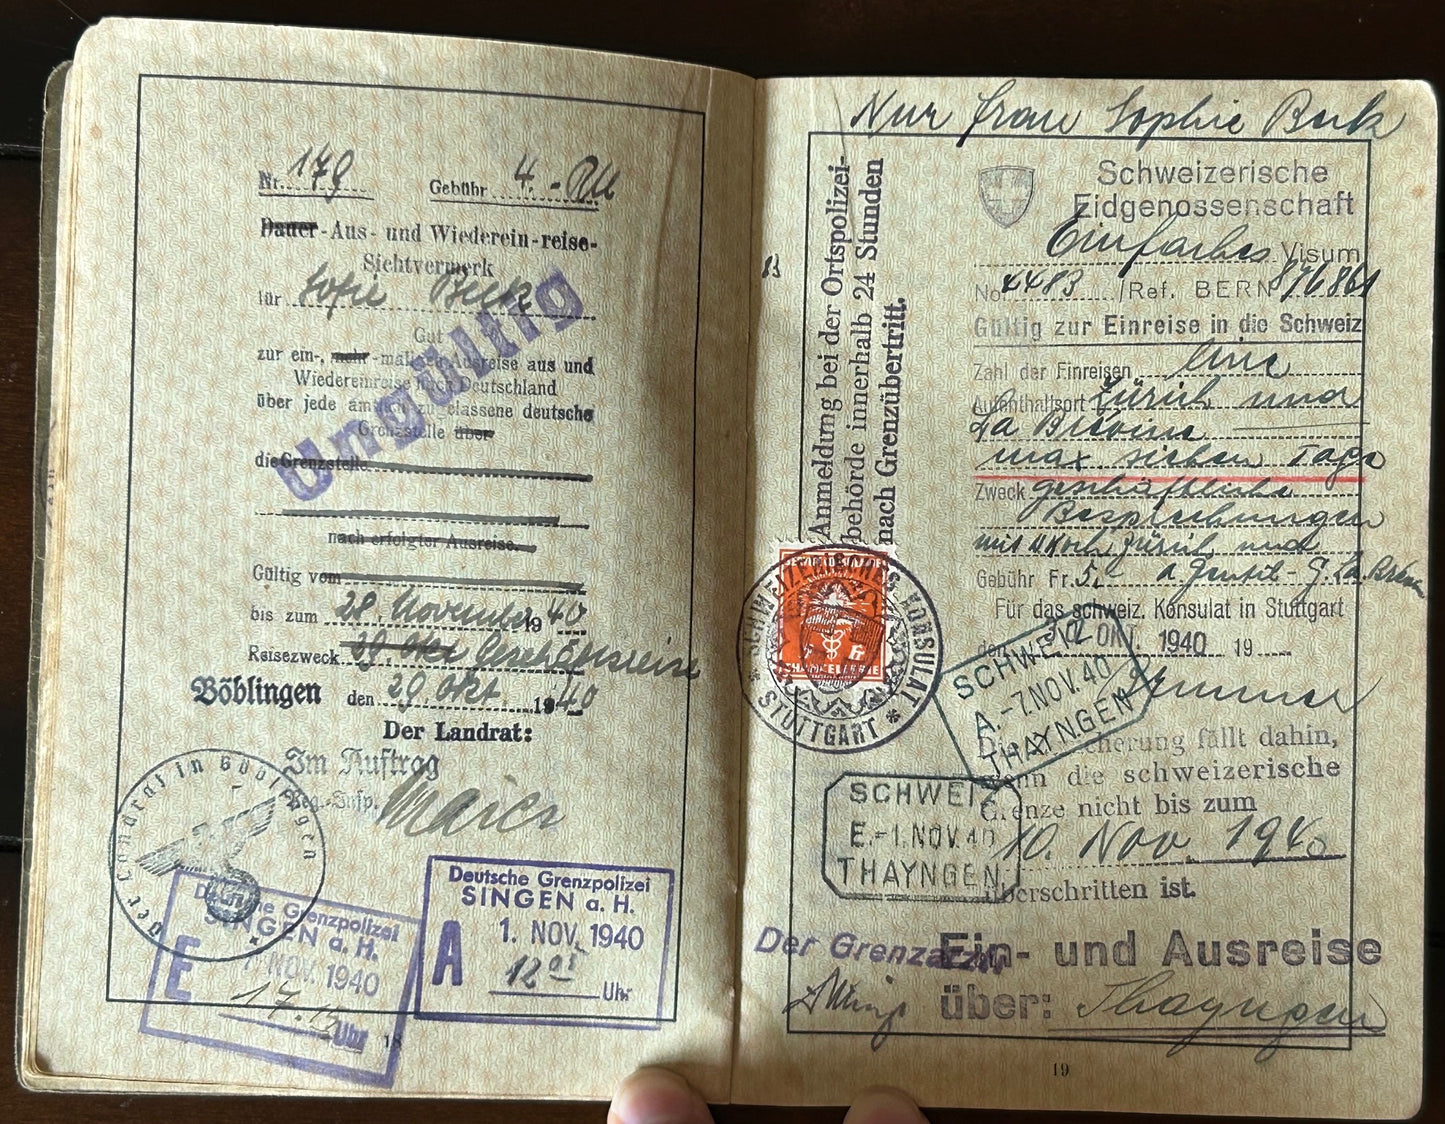 Nr. 179 Gebühr 4.- RM
Dauer-Aus- und Wiederein-reise-
Sichtvermerk
für Sofie Beck
Gut
zur ein-, mehr-maligen Ausreise aus und
Wiedereinreise nach Deutschland
über jede amtlich zugelassene deutsche
Grenzstelle über
die Grenzstelle
nach erfolgter Ausreise.
Ungültig
Gültig vom
bis zum 28. November 1940
Reisezweck 29 Okt Geschäftsreise
Böblingen den 29. Okt. 1940
Der Landrat:
Im Auftrag
Reg.-Insp.
Der Landrat in Böblingen
Deutsche Grenzpolizei
SINGEN a. H.
E 7. NOV. 1940
17.15 Uhr
Deutsche Grenzpolizei
SINGEN a. H.
A 1. NOV. 1940
12 05 Uhr
18
Nur Frau Sophie Beck
Anmeldung bei der Ortspolizei-
behörde innerhalb 24 Stunden
nach Grenzübertritt.
Schweizerische
Eidgenossenschaft
Einfaches Visum
No. 4483 /Ref. BERN 876861
Gültig zur Einreise in die Schweiz
Zahl der Einreisen eine
Aufenthaltsort Zürich und
La Brévine
max. sieben Tage
Zweck geschäftliche
Besprechungen
mit Koch, Zürich und
Gebühr Fr. 5.-
Für das schweiz. Konsulat in Stuttgart
den 30. OKT. 1940 19
SCHWEIZERISCHES KONSULAT
* STUTTGART *
CHANCELLERIE
SCHWEIZ
A.-7.NOV.40
THAYNGEN
Die Zusicherung fällt dahin,
wenn die schweizerische
Grenze nicht bis zum
10. Nov. 1940
überschritten ist.
SCHWEIZ
E.-1.NOV.40
THAYNGEN
Der Grenzarzt
Ein- und Ausreise
über: Thayngen
19